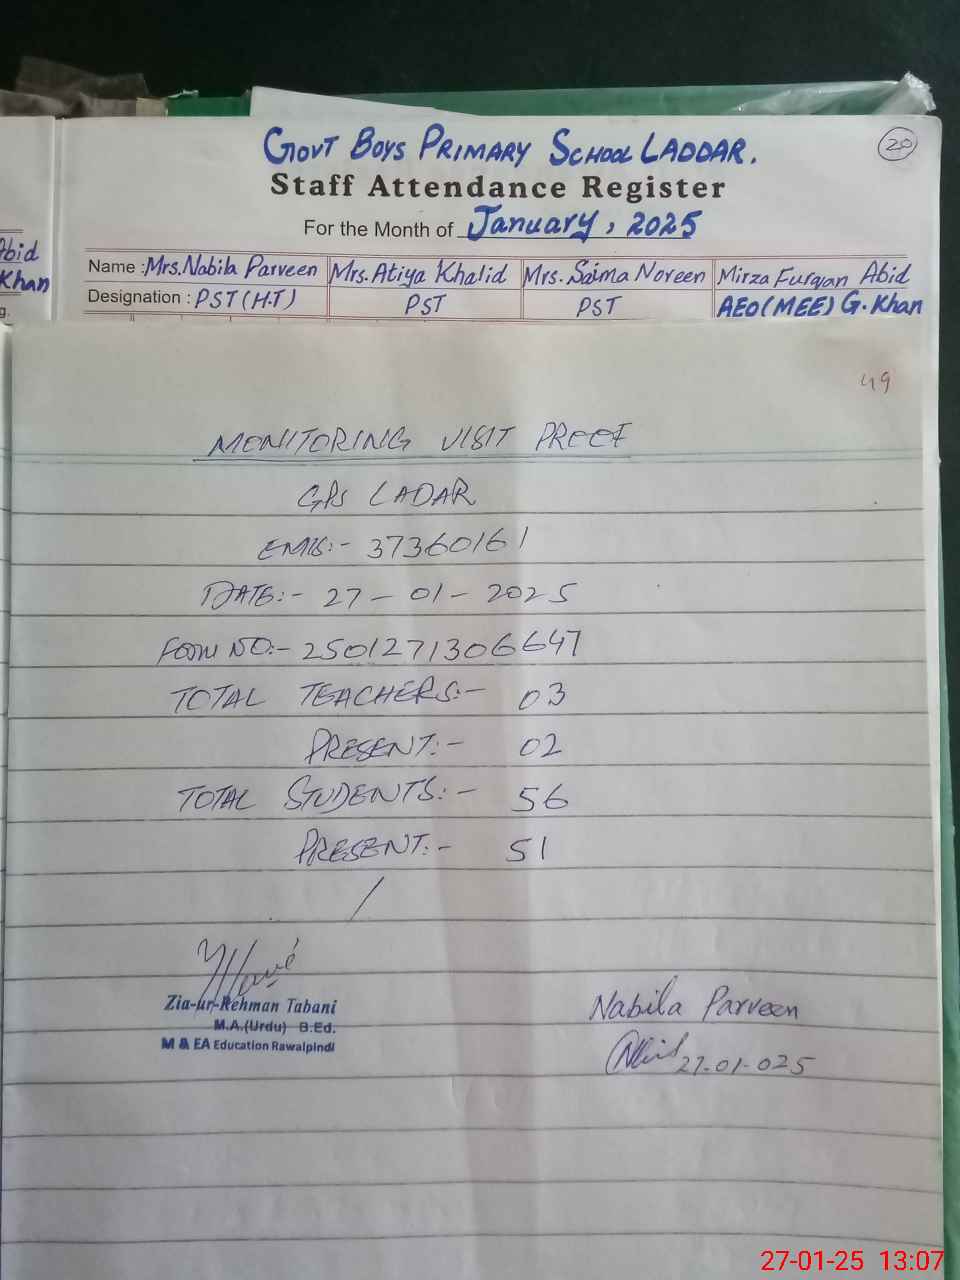 GOVT BOYS PRIMARY SCHOOL LADDAR.
20
Staff Attendance Register
For the Month of January, 2025
Abid
Khan
g.
Name : Mrs. Nabila Parveen Mrs. Atiya Khalid Mrs. Saima Noreen Mirza Furqan Abid
Designation : PST (H.T) PST PST AEO (MEE) G. Khan
49
MONITORING VISIT PROOF
GPS LADAR
EMIS:- 37360161
DATE:- 27-01-2025
FORM NO:- 2501271306647
TOTAL TEACHERS:- 03
PRESENT:- 02
TOTAL STUDENTS:- 56
PRESENT:- 51
Zia-ur-Rehman Tabani
M.A.(Urdu) B.Ed.
M & EA Education Rawalpindi
Nabila Parveen
27-01-025
27-01-25 13:07